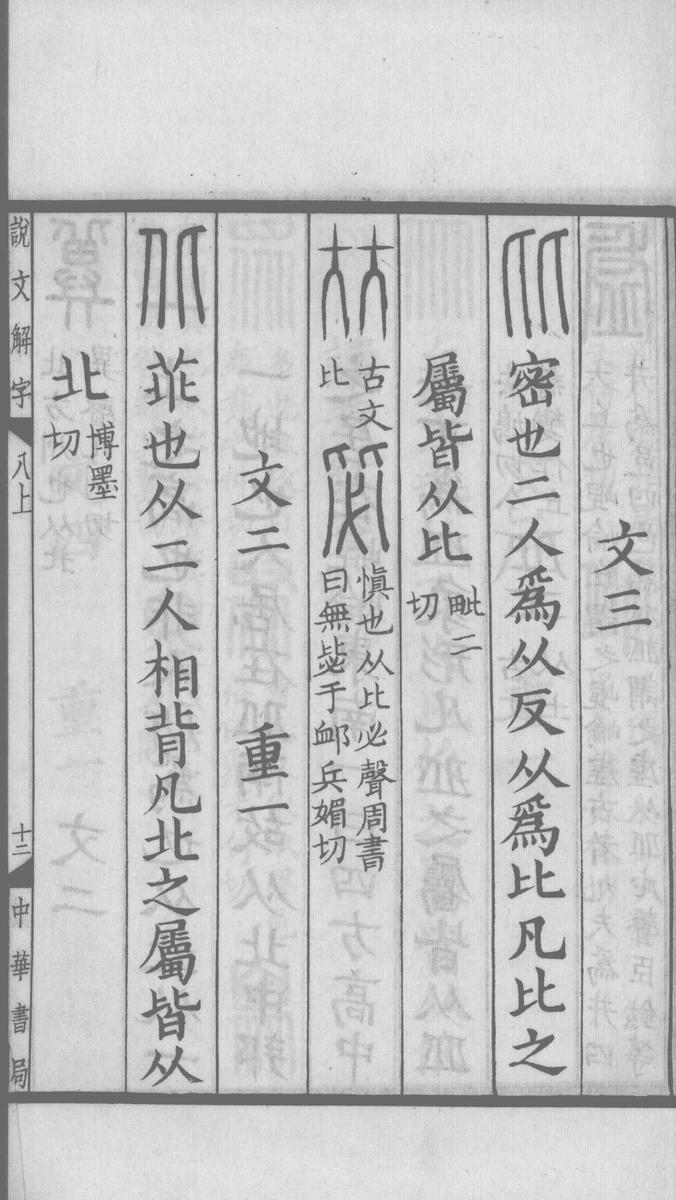 文三
比 密也二人爲从反从爲比凡比之
屬皆从比毗二切
𣬅 古文比 毖 愼也从比必聲周書曰無毖于卹兵媚切
文二 重一
北 菲也从二人相背凡北之屬皆从
北博墨切
說文解字 八上 十二 中華書局